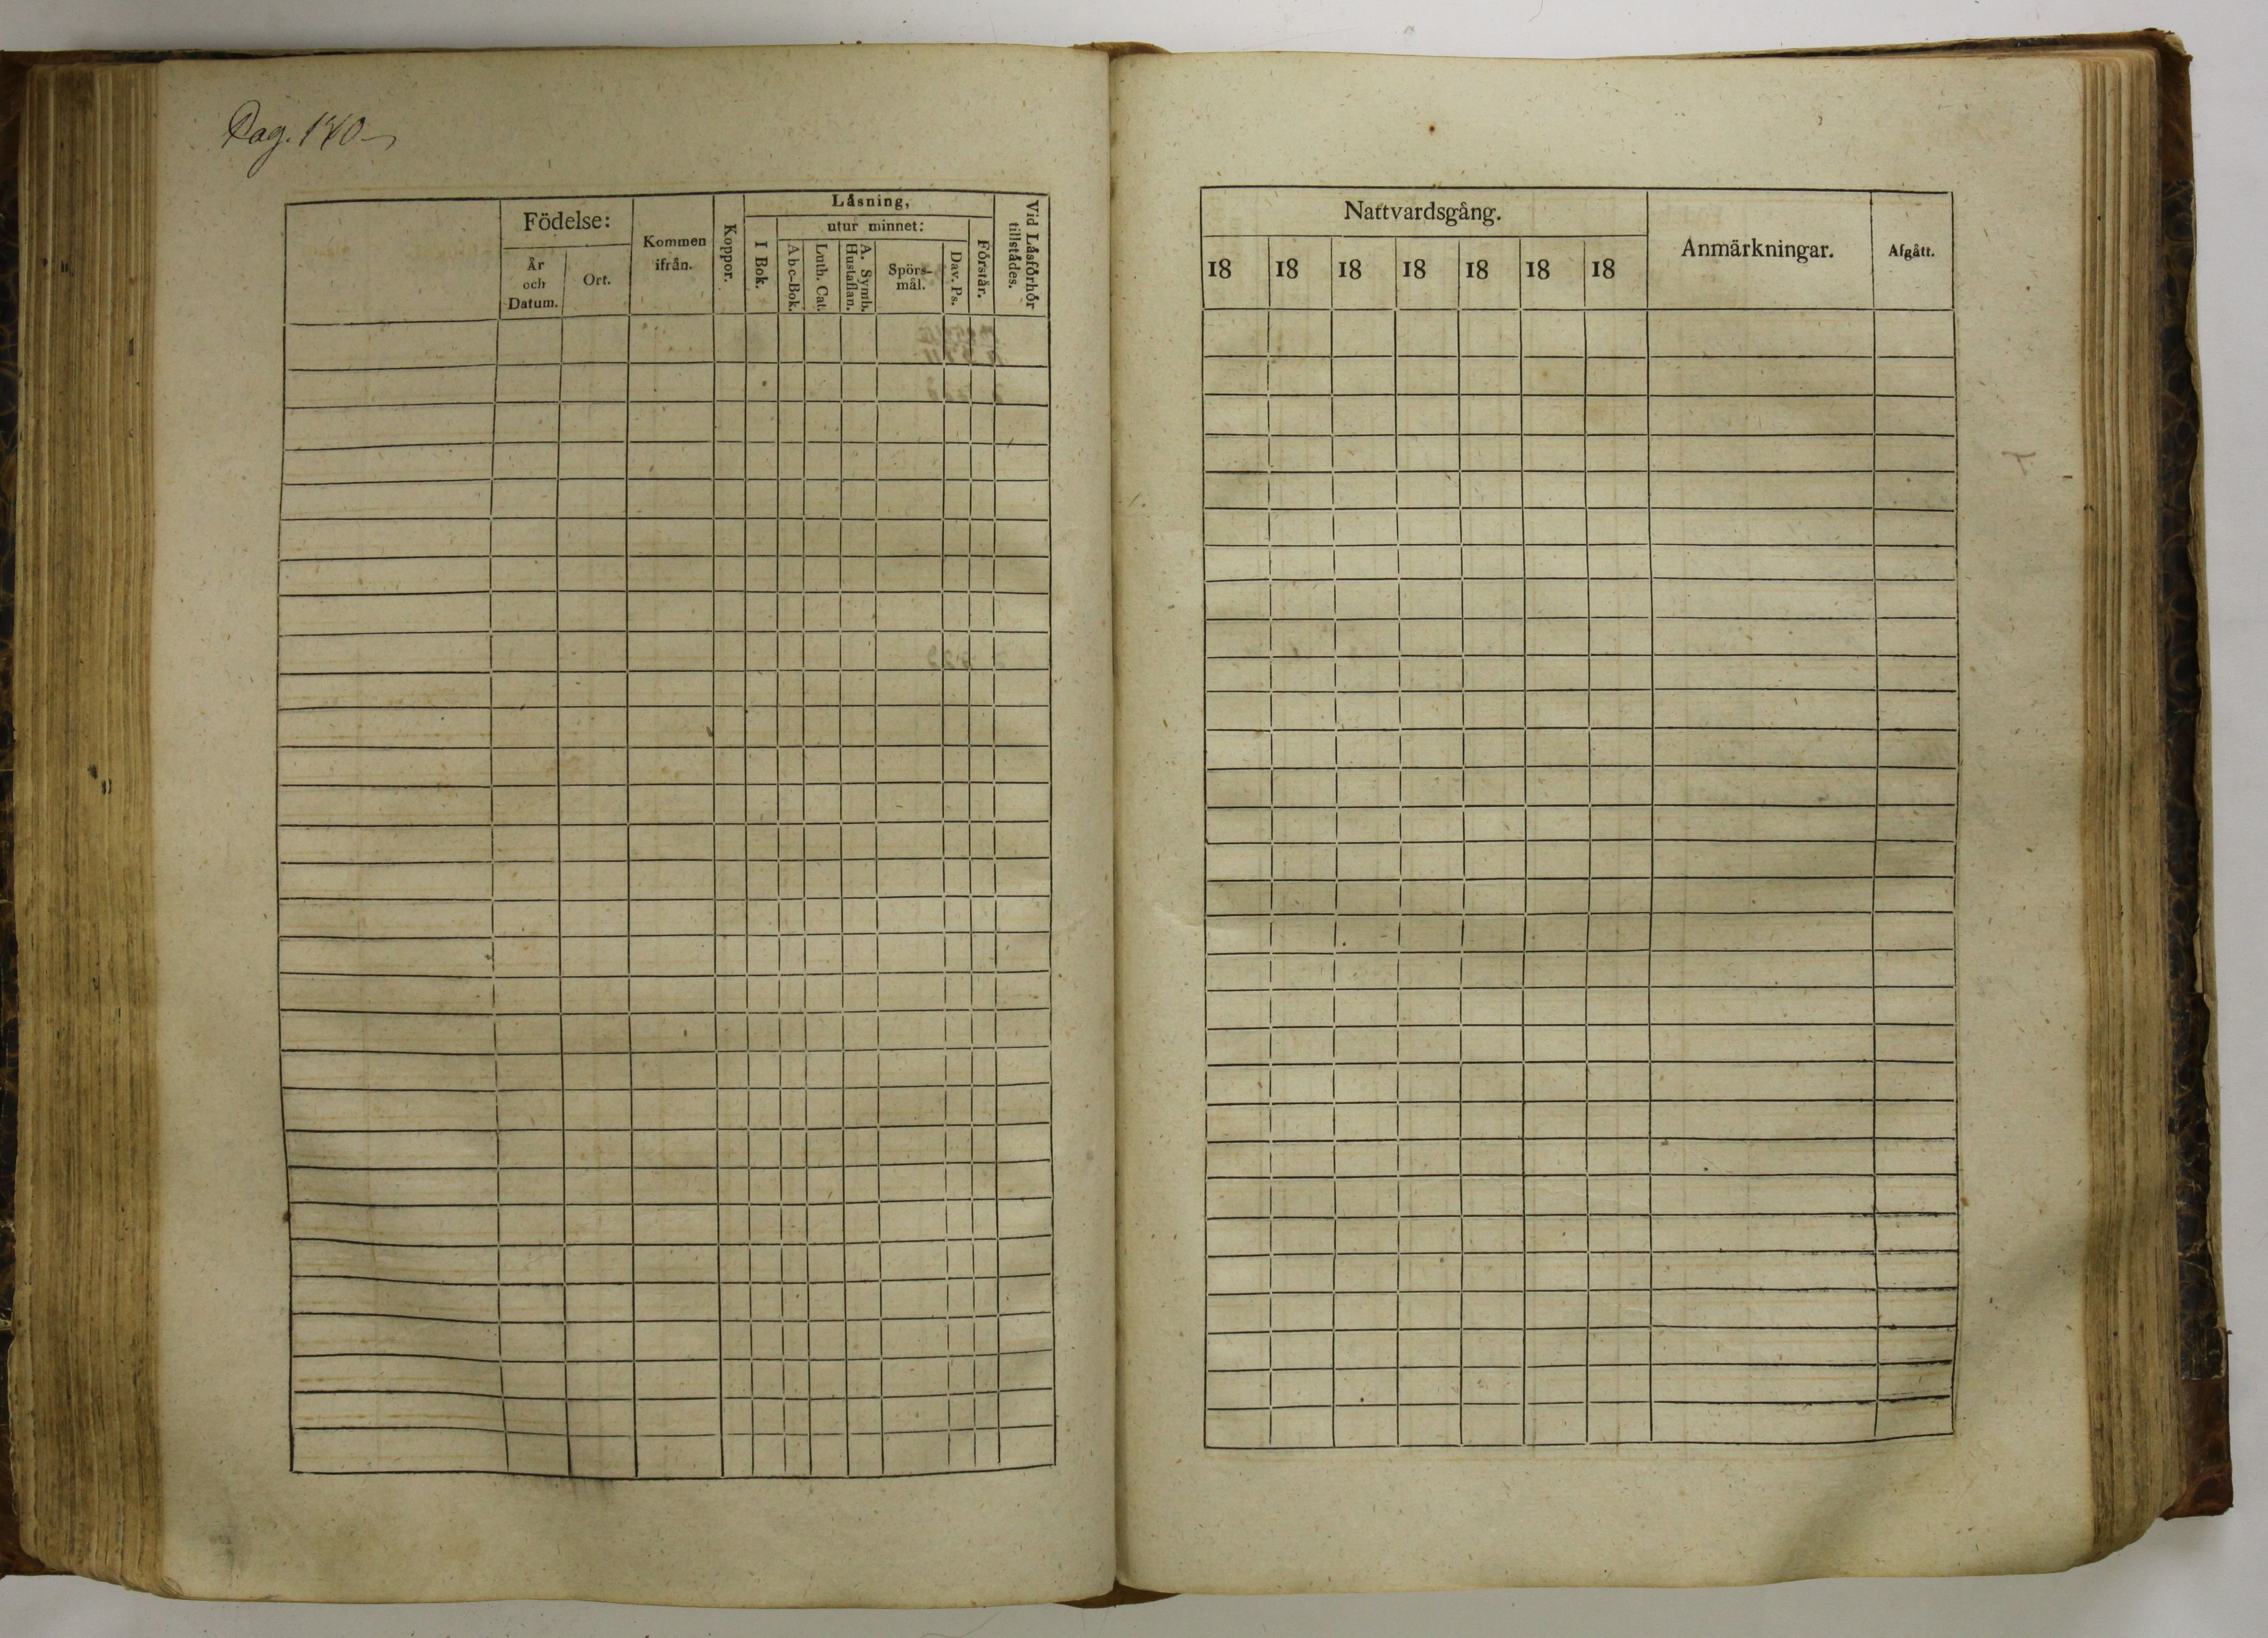 Pag. 140
Födelse:
År
och
Datum.
Ort.
Kommen
ifrån.
Koppor.
Låsning,
I Bok.
utur minnet:
Abc-Bok.
Luth. Cat.
A. Symb.
Hustaflan.
Spörs-
mål.
Dav. Ps.
Förstår.
Vid Låsförhör
tillstådes.
Nattvardsgång.
18 18 18 18 18 18 18
Anmärkningar.
Afgått.